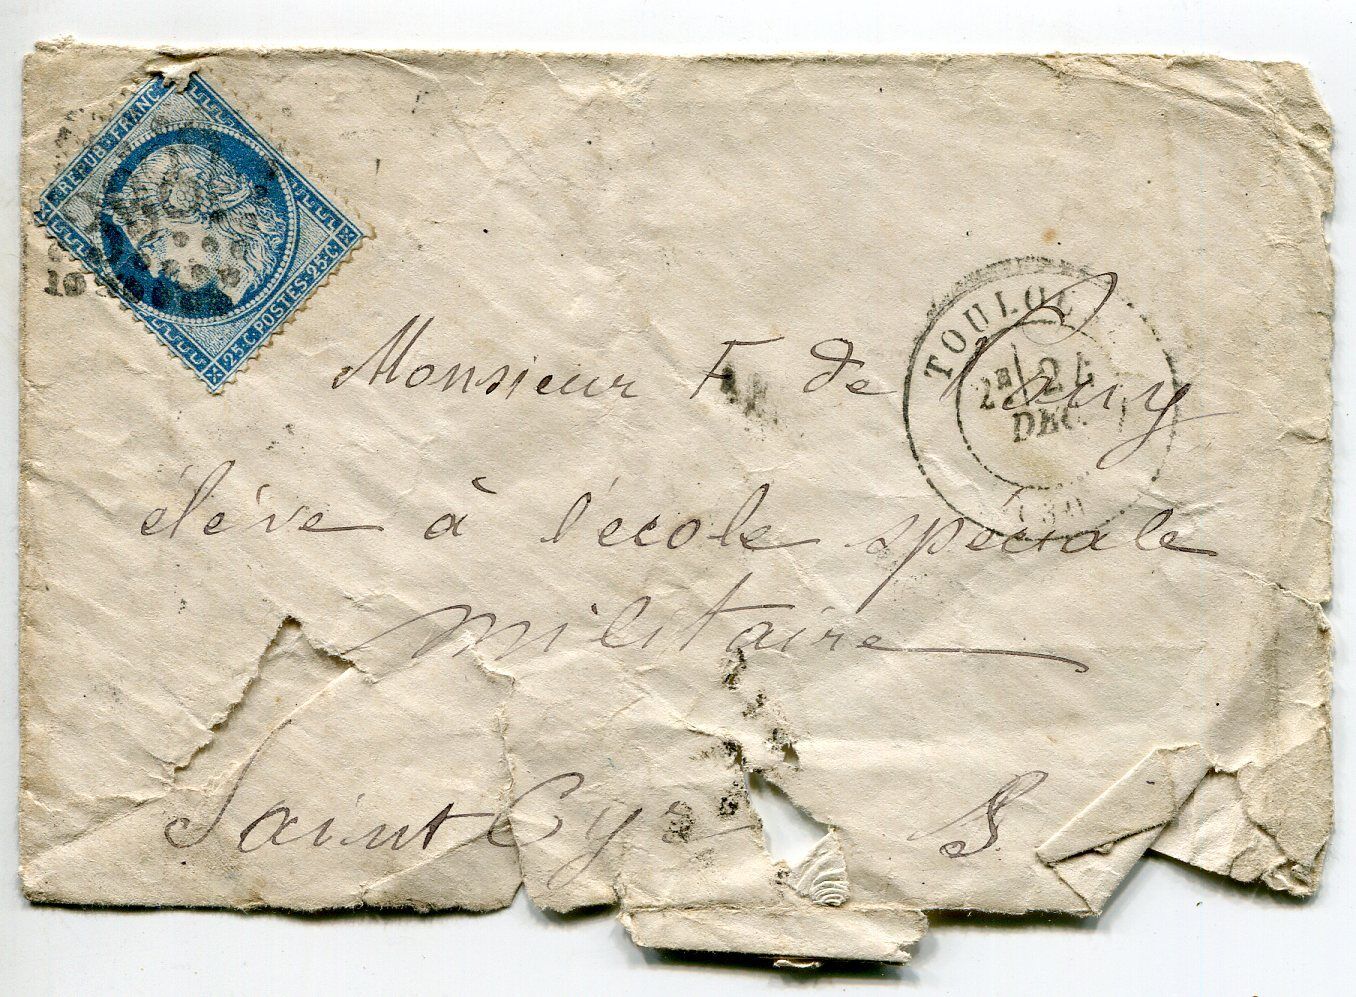 REPUB FRANC
25 C. POSTES 25 C.
TOULOU
2E 24
DEC
Monsieur F. de
élève à l'école spéciale
militaire
Saint Cyr S.